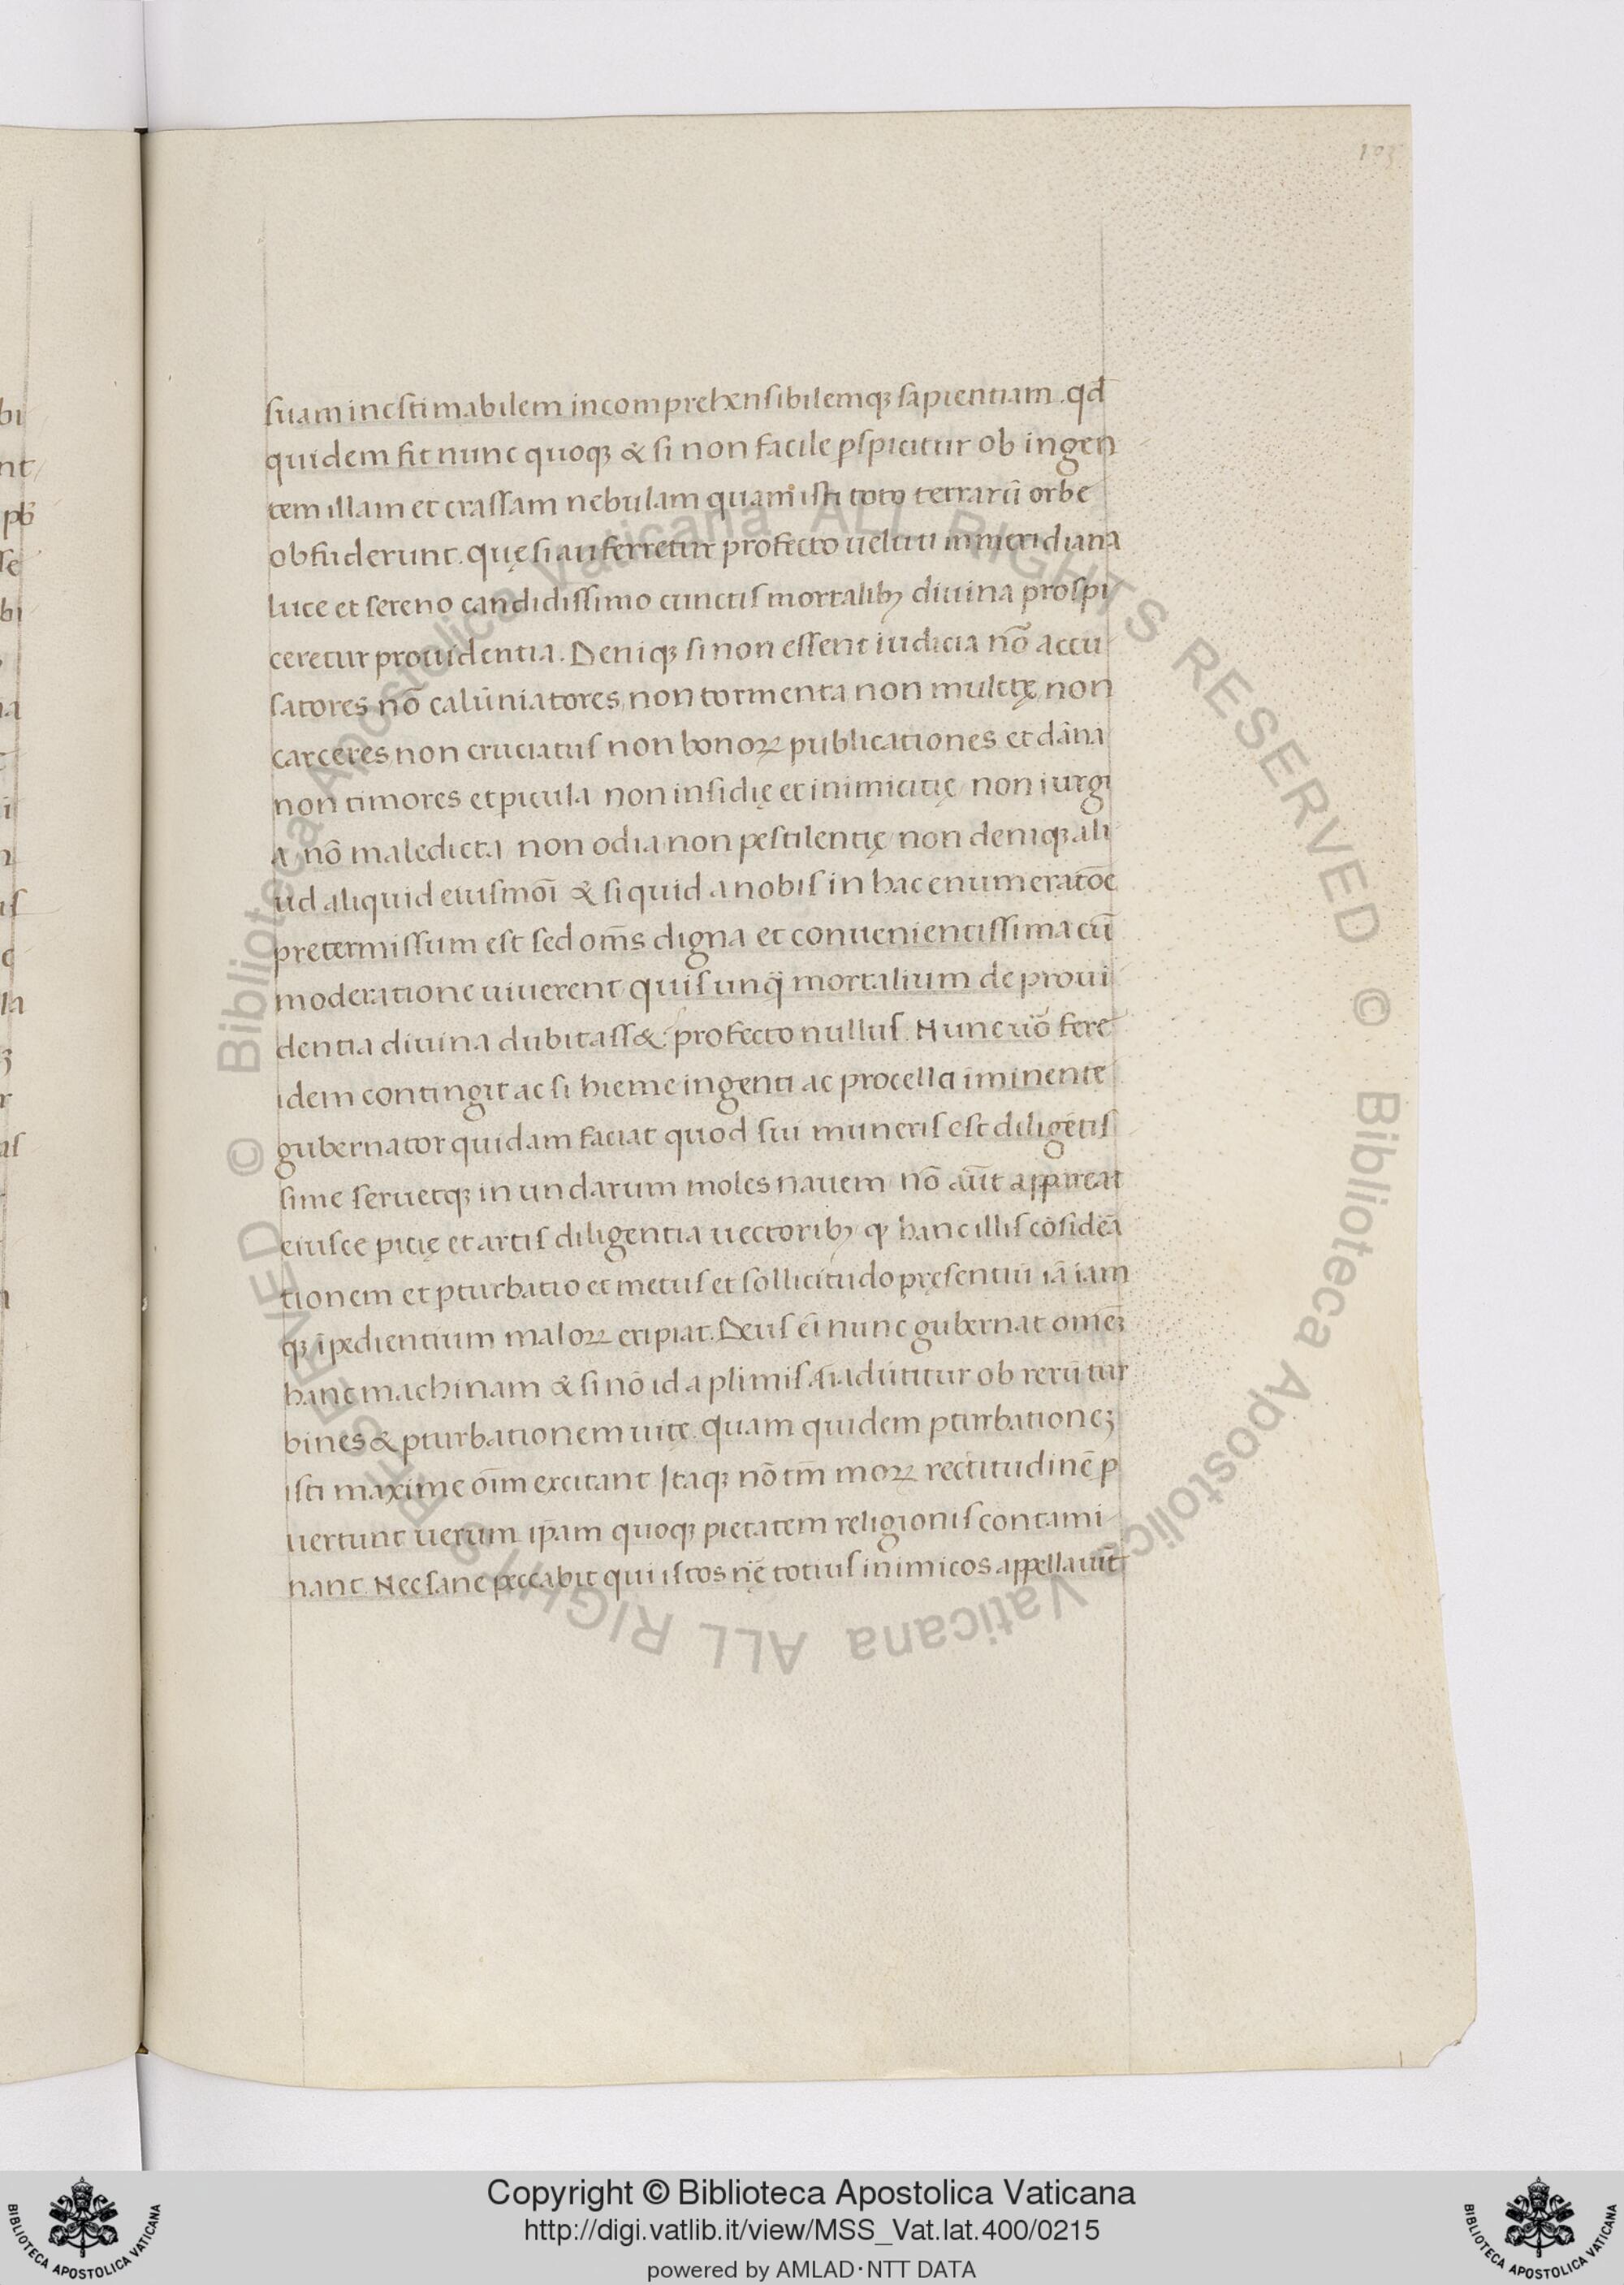 103
suam inestimabilem incomprehensibilemq; sapientiam. qđ
quidem fit nunc quoq; & si non facile ꝑspicitur ob ingen
tem illam et crassam nebulam quam isti toto terrarū orbe
obfuderunt. quę si auferretur profecto ueluti in meridiana
luce et sereno candidissimo cunctis mortalibꝫ diuina prospi
ceretur prouidentia. Deniq; si non essent iudicia nō accu
satores nō calūniatores, non tormenta non mulctę, non
carceres non cruciatus non bonoꝝ publicationes et dāna
non timores et ꝑicula non insidię et inimicitię, non iurgi
a, nō maledicta non odia, non pestilentię, non deniq; ali
ud aliquid eiusmōi & si quid a nobis in hac enumeratōe
pretermissum est sed om̄s digna et conuenientissima cū
moderatione uiuerent quis unq̄ mortalium de proui
dentia diuina dubitass&? profecto nullus. Nunc uō fere
idem contingit ac si hieme ingenti ac procella iminente
gubernator quidam faciat quod sui muneris est diligētis
sime seruetq; in undarum moles nauem nō aūt appareat
eiusce ꝑitię et artis diligentia uectoribꝫ qꝫ hanc illis cōsidēa
tionem et ꝑturbatio et metus et sollicitudo pręsentiū iā iam
q; īpedientium maloꝝ eripiat. Deus eī nunc gubernat omēꝫ
hanc machinam & si nō id a plīmis aīaduītitur ob rerū tur
bines & ꝑturbationem uitę. quam quidem ꝑturbationeꝫ
isti maxime oīm excitant Itaq; nō tm̄ moꝝ rectitudinē ꝑ
uertunt uerum ip̄am quoq; pietatem religionis contami
nant. Nec sane peccabit qui istos nr̄ę totius inimicos appellauīt
bi
nt
pb̄
se
bi
Copyright © Biblioteca Apostolica Vaticana
http://digi.vatlib.it/view/MSS_Vat.lat.400/0215
powered by AMLAD·NTT DATA
BIBLIOTECA APOSTOLICA VATICANA
BIBLIOTECA APOSTOLICA VATICANA
© Biblioteca Apostolica Vaticana ALL RIGHTS RESERVED © Biblioteca Apostolica Vaticana ALL RIGHTS RESERVED